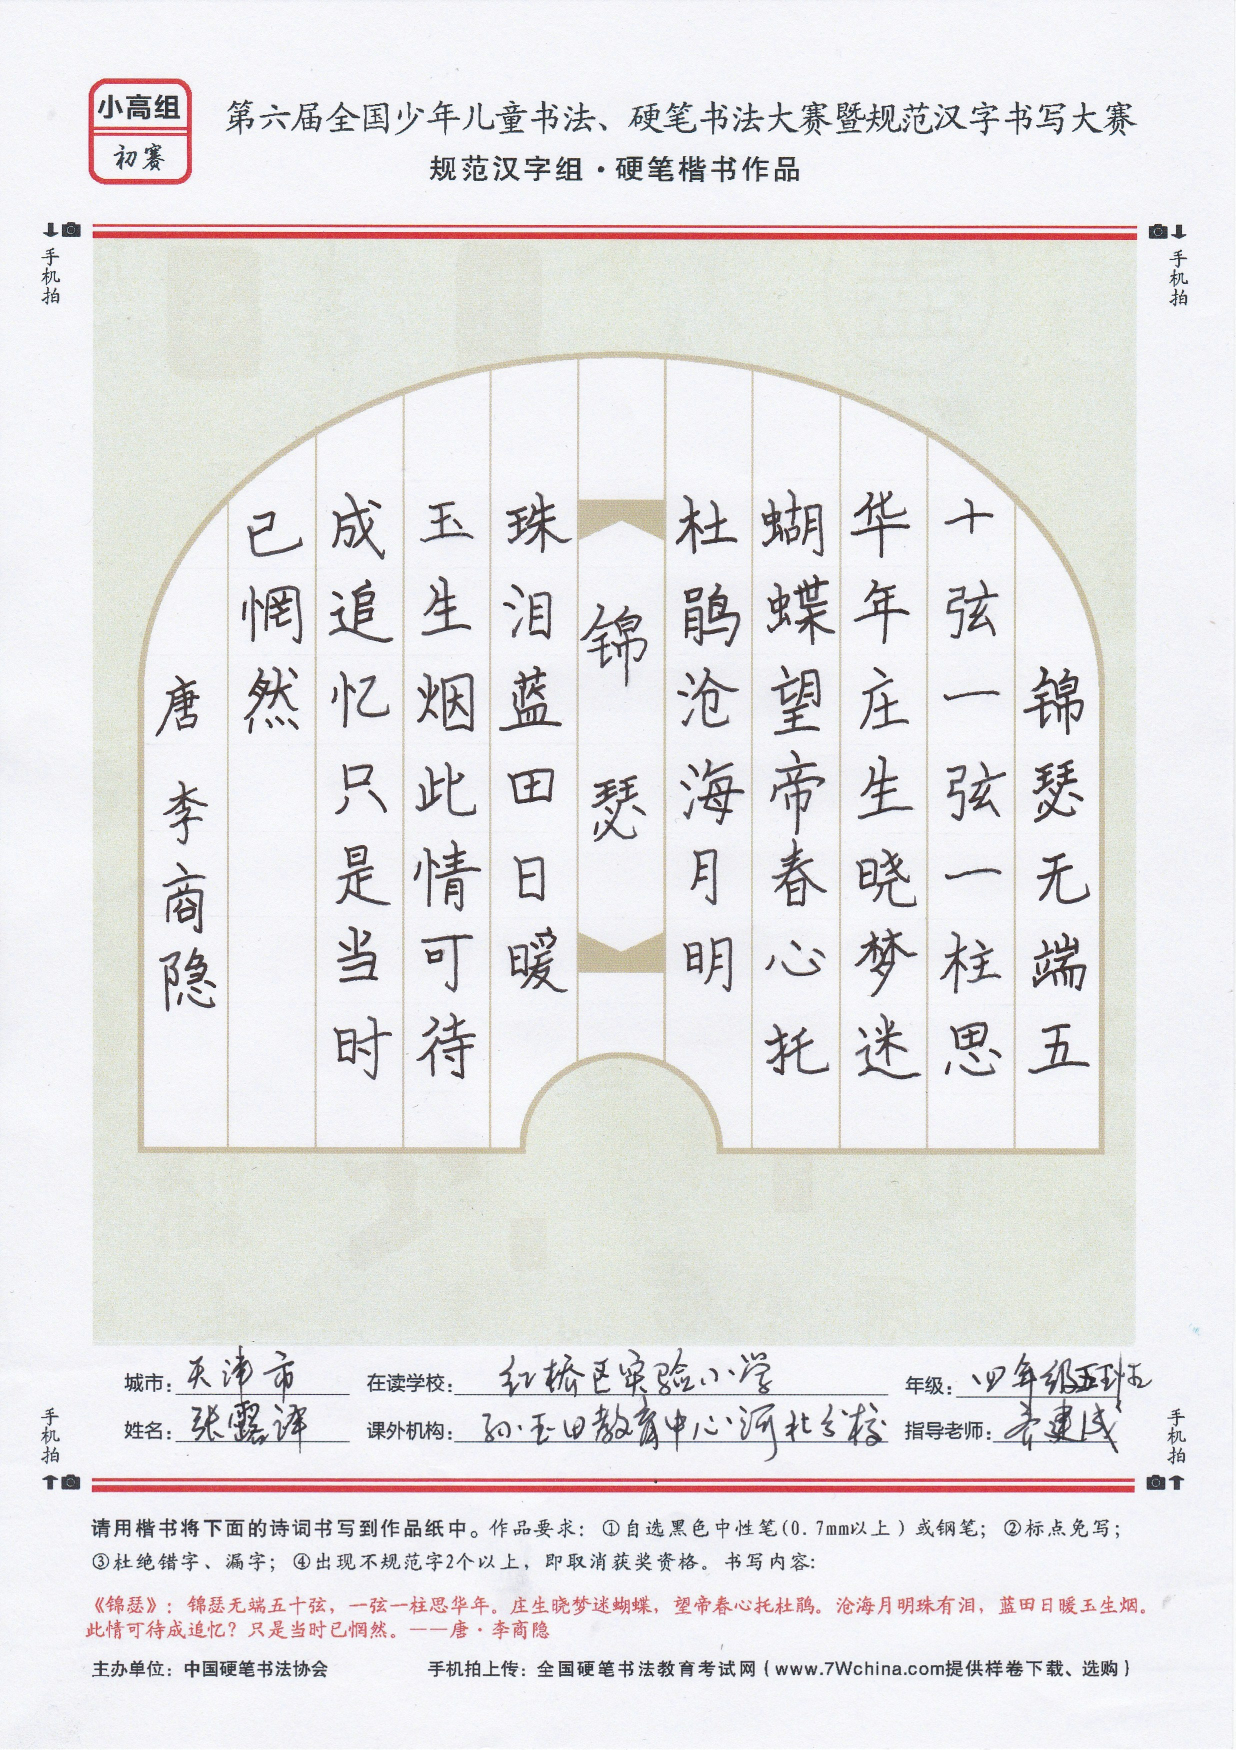 小高组
初赛
第六届全国少年儿童书法、硬笔书法大赛暨规范汉字书写大赛
规范汉字组·硬笔楷书作品
手机拍
手机拍
锦瑟无端五
十弦一弦一柱思
华年庄生晓梦迷
蝴蝶望帝春心托
杜鹃沧海月明
锦瑟
珠泪蓝田日暖
玉生烟此情可待
成追忆只是当时
已惘然
唐 李商隐
城市：天津市 在读学校：红桥区实验小学 年级：四年级五班
姓名：张露译 课外机构：孙玉田教育中心河北分校 指导老师：齐建成
手机拍
手机拍
请用楷书将下面的诗词书写到作品纸中。作品要求：①自选黑色中性笔(0.7mm以上)或钢笔；②标点免写；
③杜绝错字、漏字；④出现不规范字2个以上，即取消获奖资格。书写内容：
《锦瑟》：锦瑟无端五十弦，一弦一柱思华年。庄生晓梦迷蝴蝶，望帝春心托杜鹃。沧海月明珠有泪，蓝田日暖玉生烟。
此情可待成追忆？只是当时已惘然。——唐·李商隐
主办单位：中国硬笔书法协会 手机拍上传：全国硬笔书法教育考试网（www.7Wchina.com提供样卷下载、选购）